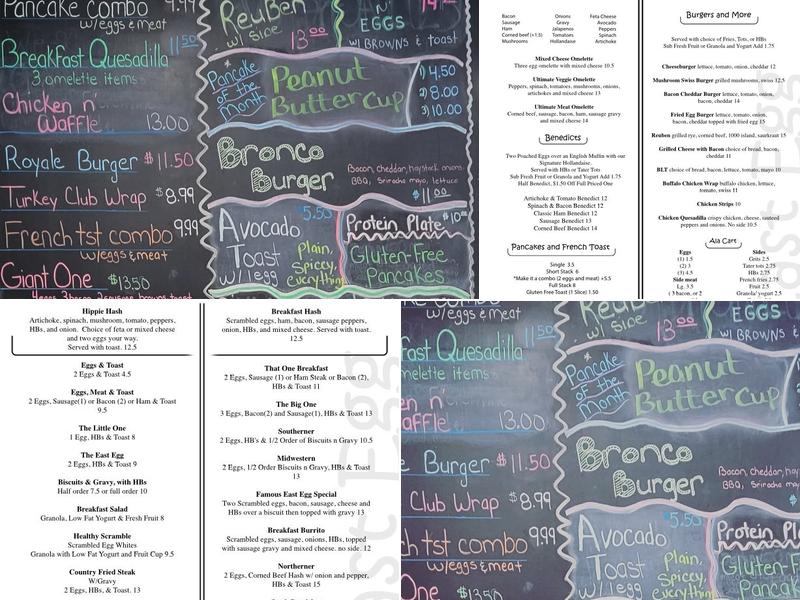 Pancake combo 9.99
w/eggs & meat
Breakfast Quesadilla 11.50
3 omelette items
Chicken n'
Waffle 13.00
Royale Burger $11.50
Turkey Club Wrap $8.99
French tst combo 9.99
w/eggs & meat
Giant One $13.50
Reuben
w/ slice 13.00
n'
EGGS
w/ BROWNS & toast
Pancake
of the
Month
Peanut
Butter Cup
1) 4.50
2) 8.00
3) 10.00
Bronco
Burger
Bacon, cheddar, haystack onions
BBQ, Sriracha mayo, lettuce
$11.00
Avocado 5.50
Toast
w/1 egg
Plain,
Spiccy,
everything
Protein Plate $10.00
Gluten-Free
Pancakes
Bacon Onions Feta Cheese
Sausage Olives Avocado
Ham Jalapenos Peppers
Corned beef (+1.5) Tomatoes Spinach
Mushrooms Hollandaise Artichoke
Mixed Cheese Omelette
Three egg omelette with mixed cheese 10.5
Ultimate Veggie Omelette
Peppers, spinach, tomatoes, mushrooms, onions,
artichokes and mixed cheese 13
Ultimate Meat Omelette
Corned beef, sausage, bacon, ham, sausage gravy
and mixed cheese 14
Benedicts
Two Poached Eggs over an English Muffin with our
Signature Hollandaise.
Served with HBs or Tater Tots
Sub Fresh Fruit or Granola and Yogurt Add 1.75
Half Benedict, $1.50 Off Full Priced One
Artichoke & Tomato Benedict 12
Spinach & Bacon Benedict 12
Classic Ham Benedict 12
Sausage Benedict 13
Corned Beef Benedict 14
Pancakes and French Toast
Single 3.5
Short Stack 6
*Make it a combo (2 eggs and meat) +5.5
Full Stack 8
Gluten Free Toast (1 Slice) 1.50
Burgers and More
Served with choice of Fries, Tots, or HBs
Sub Fresh Fruit or Granola and Yogurt Add 1.75
Cheeseburger lettuce, tomato, onion, cheddar 12
Mushroom Swiss Burger grilled mushrooms, swiss 12.5
Bacon Cheddar Burger lettuce, tomato, onion,
bacon, cheddar 14
Fried Egg Burger lettuce, tomato, onion,
bacon, cheddar topped with fried egg 15
Reuben grilled rye, corned beef, 1000 island, saurkraut 15
Grilled Cheese with Bacon choice of bread, bacon,
cheddar 11
BLT choice of bread, bacon, lettuce, tomato, mayo 10
Buffalo Chicken Wrap buffalo chicken, lettuce,
tomato, swiss 11
Chicken Strips 10
Chicken Quesadilla crispy chicken, cheese, sauteed
peppers and onions. No side 10.5
Ala Cart
Eggs Sides
(1) 1.5 Grits 2.5
(2) 3 Tater tots 2.75
(3) 4.5 HBs 2.75
Side meat French fries 2.75
Lg. 3.5 Fruit 2.5
( 3 bacon, or 2 Granola/ yogurt 2.5
Hippie Hash
Artichoke, spinach, mushroom, tomato, peppers,
HBs, and onion. Choice of feta or mixed cheese
and two eggs your way.
Served with toast. 12.5
Eggs & Toast
2 Eggs & Toast 4.5
Eggs, Meat & Toast
2 Eggs, Sausage(1) or Bacon (2) or Ham & Toast
9.5
The Little One
1 Egg, HBs & Toast 8
The East Egg
2 Eggs, HBs & Toast 9
Biscuits & Gravy, with HBs
Half order 7.5 or full order 10
Breakfast Salad
Granola, Low Fat Yogurt & Fresh Fruit 8
Healthy Scramble
Scrambled Egg Whites
Granola with Low Fat Yogurt and Fruit Cup 9.5
Country Fried Steak
W/Gravy
2 Eggs, HBs, & Toast. 13
Breakfast Hash
Scrambled eggs, ham, bacon, sausage peppers,
onion, HBs, and mixed cheese. Served with toast.
12.5
That One Breakfast
2 Eggs, Sausage (1) or Ham Steak or Bacon (2),
HBs & Toast 11
The Big One
3 Eggs, Bacon(2) and Sausage(1), HBs & Toast 13
Southerner
2 Eggs, HB's & 1/2 Order of Biscuits n Gravy 10.5
Midwestern
2 Eggs, 1/2 Order Biscuits n Gravy, HBs & Toast
13
Famous East Egg Special
Two Scrambled eggs, bacon, sausage, cheese and
HBs over a biscuit then topped with gravy 13
Breakfast Burrito
Scrambled eggs, sausage, onions, HBs, topped
with sausage gravy and mixed cheese. no side. 12
Northerner
2 Eggs, Corned Beef Hash w/ onion and pepper,
HBs & Toast 15
w/eggs & meat
fast Quesadilla 11.50
melette items
en n'
affle 13.00
Burger $11.50
Club Wrap $8.99
h tst combo 9.99
w/eggs & meat
One $13.50
Reuben
w/ slice 13.00
EGGS
w/ BROWNS &
Pancake
of the
Month
Peanut
Butter Cup
Bronco
Burger
Bacon, cheddar, hay
BBQ, Sriracha ma
Avocado 5.50
Toast
w/1 egg
Plain,
Spiccy,
everything
Protein Pl
Gluten-F
Panca